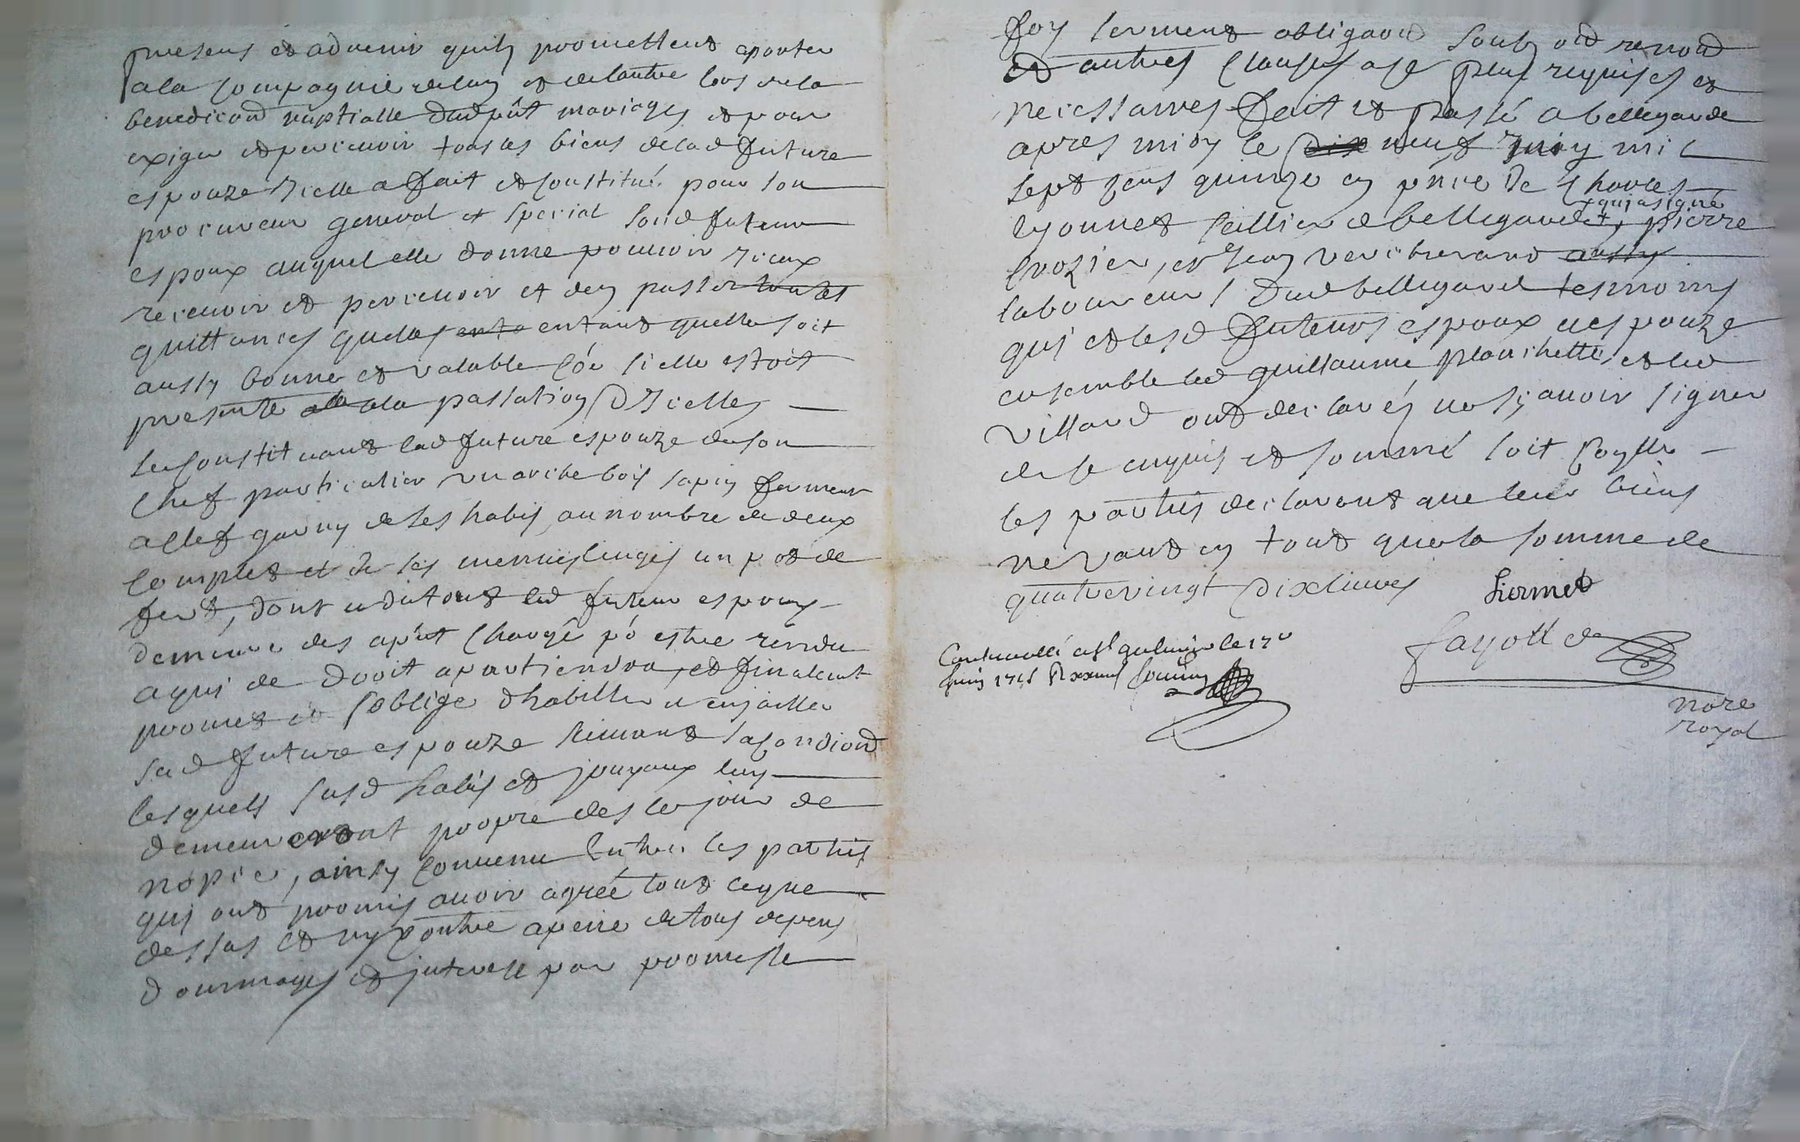 presens et advenir quilz promettent aporter
a la compagnie de lun et de lautre lors de la
benediction nuptialle dud pnt mariages et pour
exiger et percevoir tous les biens de lad future
espouze icelle a fait et constitué pour son
procureur general et special led futeur
espoux auquel elle donne pouvoir iceux
recevoir et percevoir et den passer toutes
quittances quelles entant quelle soit
aussy bonne et valable que sy elle estoit
presente a la passation dicelles
Se constituant lad future espouze de son
chef particulier un arche bois sapin fermens
a clef garny de ses habis, au nombre de deux
complet et de ses menus linges un pot de
fert, dont du tout led futeur espoux
demeure des apnt chargé po estre rendu
a qui de droit apartiendra, et finalemt
promet et soblige dhabiller et enjoailler
sad future espouze suivant sa condiond
lesquels susd habis et joyaux luy
demeureront propre des le jour de
nopce, ainsy convenu entre les parties
qui ont promis avoir agreé tout ce que
dessus et ny contre a peine de tous depens
dommages et interest par promesse
foy serment obligaond soubz ond renond
et autres clauses a ce plus requises et
necessaires fait et passé a bellegarde
apres midy le dix neuf juin mil
sept cens quinze en pnce de Charles
Lyonnet sellier de bellegarde + pierre
+ qui a signé
Crozier, et Jean Verchrerand aussy
laboureur dud bellegarde tesmoins
qui et lesd futeurs espoux et espouze
ensemble led guillaume planchette et led
Villard ont declarés ne sçavoir signer
de ce enquis et sommé soit conllé
les parties declarant que leur biens
ne vaut en tout que la somme de
quatre vingt dix livres
Lionnet
Fayolle
nore
royal
Controllé a St galmier le
juin 1715